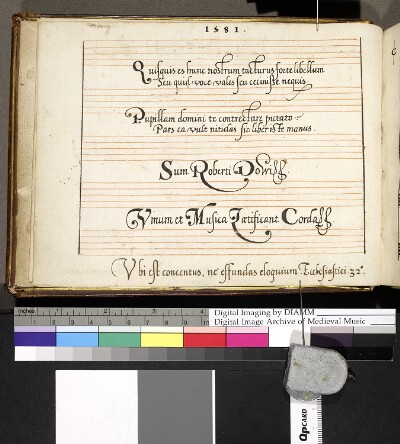 1581.
Quisquis es hunc nostrum tacturus forte libellum
Seu quid voce vales seu cecinisse nequis
Pupillam domini te contrectare putato
Pars ea vult nitidas sic liber iste manus.
Sum Roberti Dowiſſ.
Vinum et Musica Lætificant Cordaſſ
Vbi est concentus, ne effundas eloquium. Ecclesiastici 32°.
inches 1 2
Digital Imaging by DIAMM
Digital Image Archive of Medieval Music
QPCARD